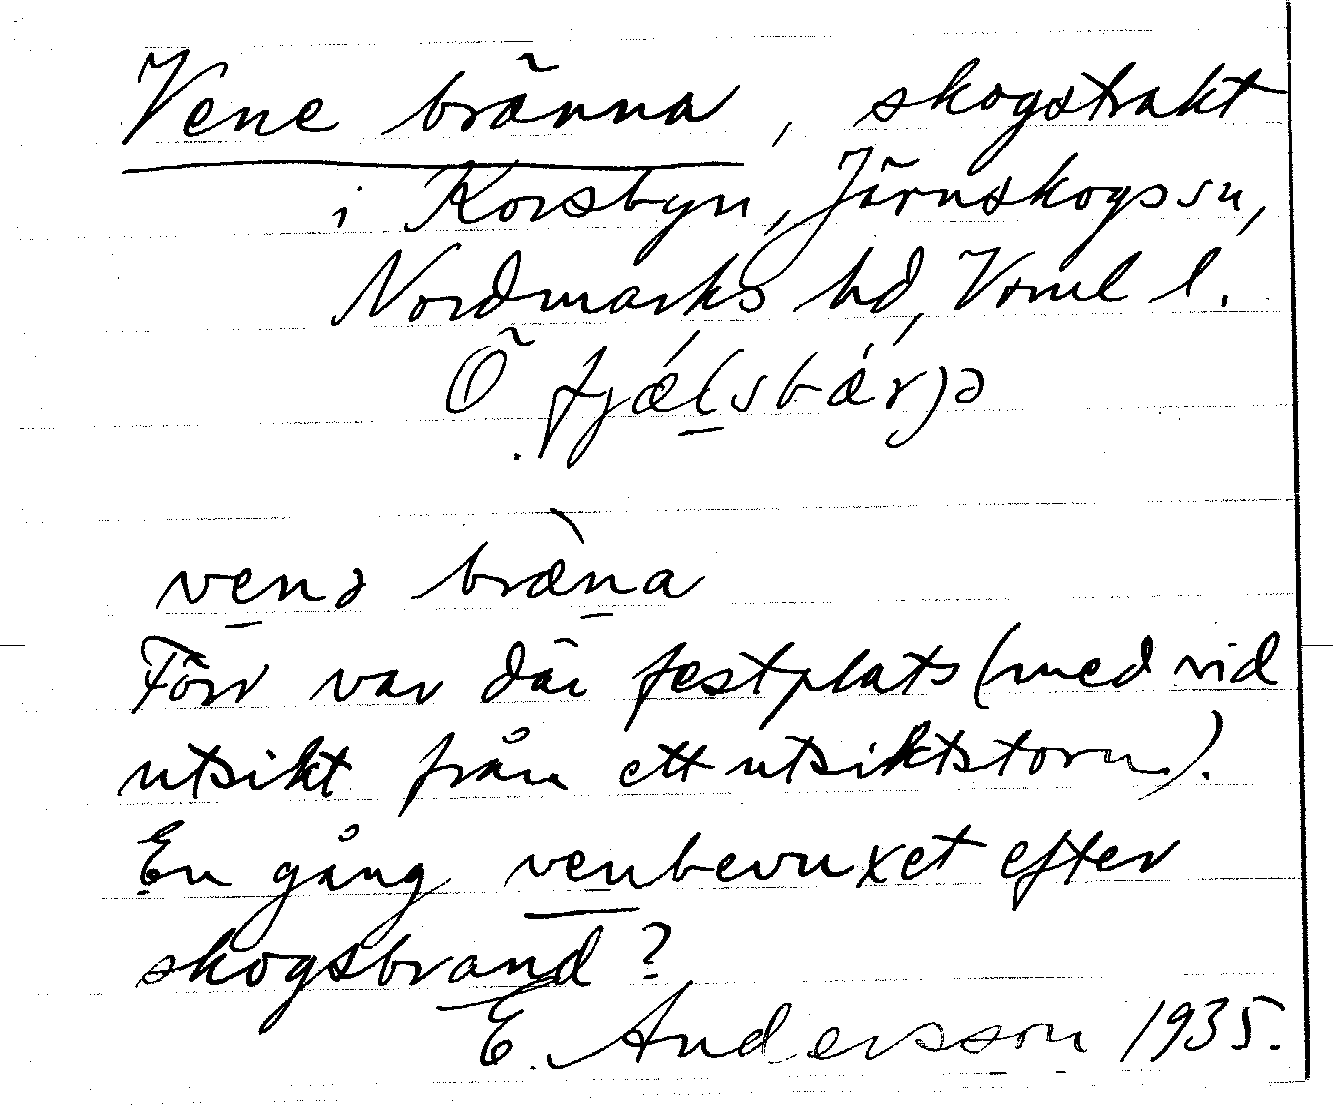 Vene bränna, skogstrakt
i Korsbyn, Järnskogs sn,
Nordmarks hd, Verml l.
Ö fjælsbærjə
venə bræ̀na
Förr var där festplats (med vid
utsikt från ett utsiktstorn).
En gång venbevuxet efter
skogsbrand?
E. Andersson 1935.